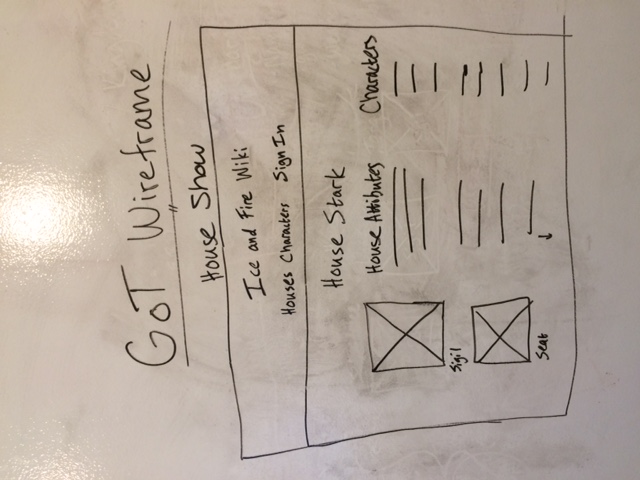 GoT Wireframe
"
House Show
Ice and Fire Wiki
Houses Characters Sign In
House Stark
House Attibutes
Characters
Sigil
Seat